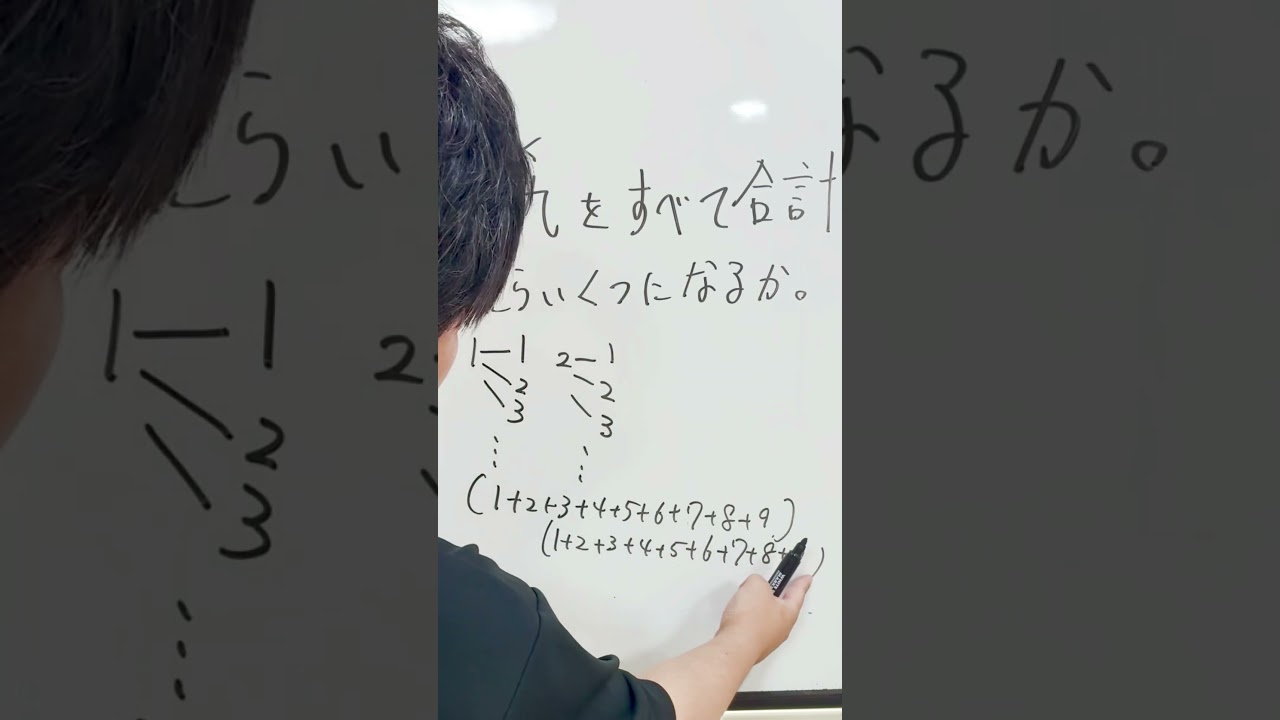 九をすべて合計
らいくつになるか。
1-1 2-1
2 2
3 3
⋮ ⋮
(1+2+3+4+5+6+7+8+9)
(1+2+3+4+5+6+7+8+